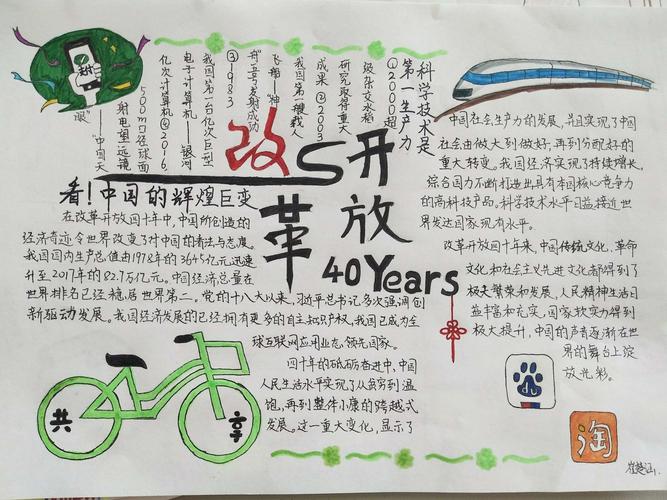 支
科学技术是
第一生产力
①2000超
级杂交水稻
研究取得重大
成果②2003
我国第一艘载人
飞船"神
舟"五号发射成功
③1983
我国第一台亿次巨型
电子计算机——银河
亿次计算机④2016
500m口径球面
射电望远镜
——"中国天
眼"
改革
开放
40 Years
看!中国的辉煌巨变
在改革开放四十年中,中国所创造的
经济奇迹令世界改变了对中国的看法与态度。
我国国内生产总值由1978年的3645亿元迅速
升至2017年的82.7万亿元。中国经济总量在
世界排名已经稳居世界第二。党的十八大以来,习近平总书记多次强调创
新驱动发展。我国经济发展的已经拥有更多的自主知识产权,我国已成为全
球互联网应用业态领先国家。
四十年的砥砺奋进中,中国
人民生活水平实现了从贫穷到温
饱,再到整体小康的跨越式
发展。这一重大变化,显示了
中国社会生产力的发展,并且实现了中国
社会由做大到做好,再到分配好的
重大转变。我国经济实现了持续增长,
综合国力不断打造出具有本国核心竞争力
的高科技产品。科学技术水平日益接近世
界发达国家现有水平。
改革开放四十年来,中国传统文化、革命
文化和社会主义先进文化都得到了
极大繁荣和发展,人民精神生活日
益丰富和充实。国家软实力得到
极大提升,中国的声音逐渐在世
界的舞台上绽
放光彩。
共享
du
淘